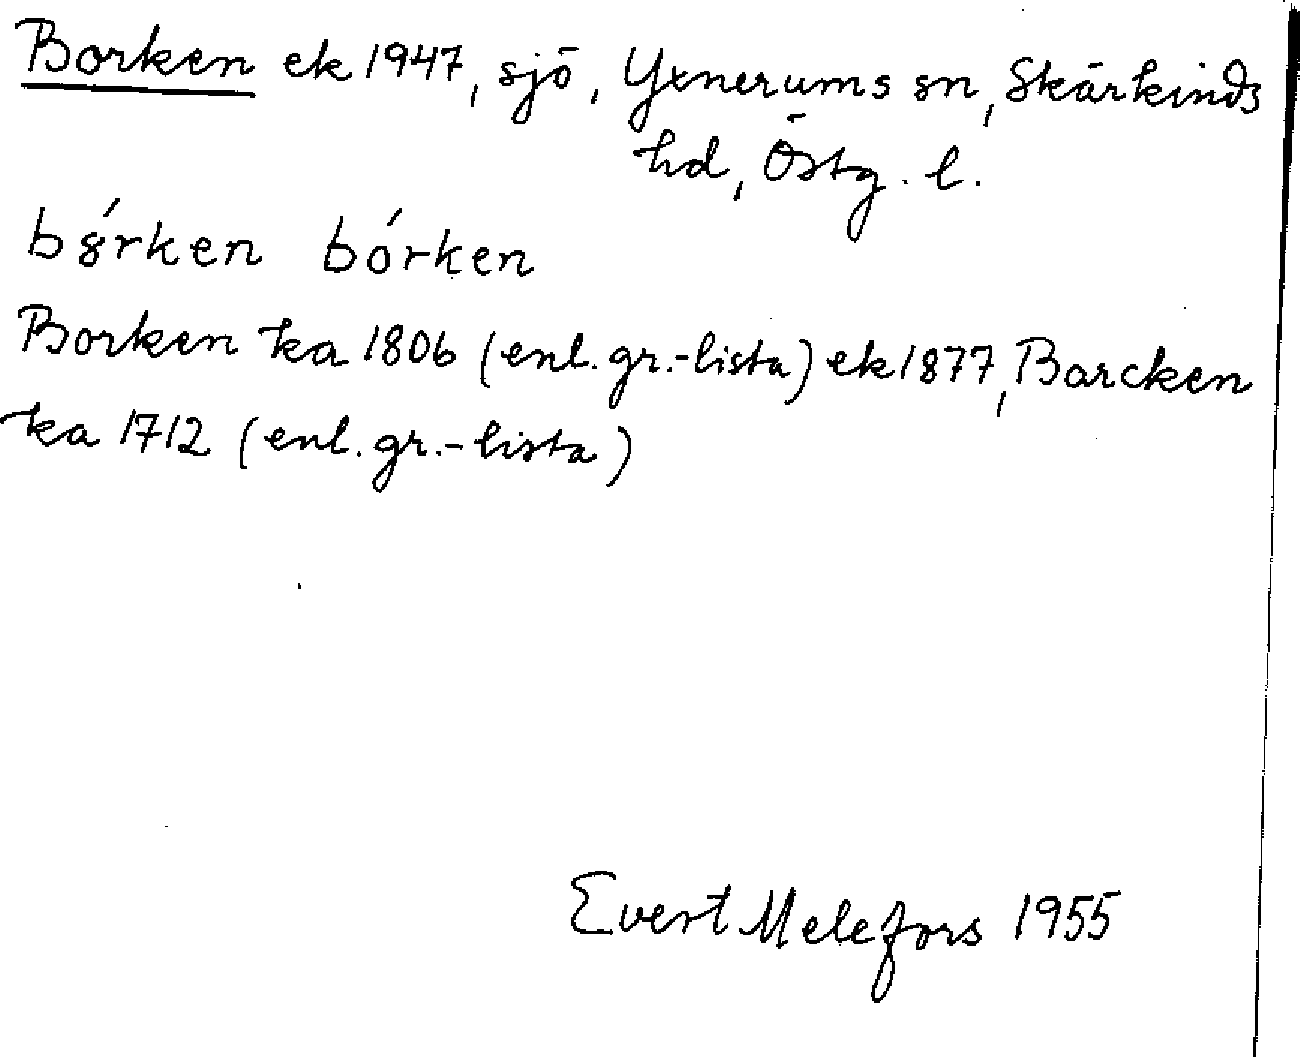 Borken ek 1947, sjö, Yxnerums sn, Skärkinds
hd, Östg. l.
bó̤rken bórken
Borken ka 1806 (enl. gr.-lista) ek 1877, Barcken
ka 1712 (enl. gr.-lista)
Evert Melefors 1955